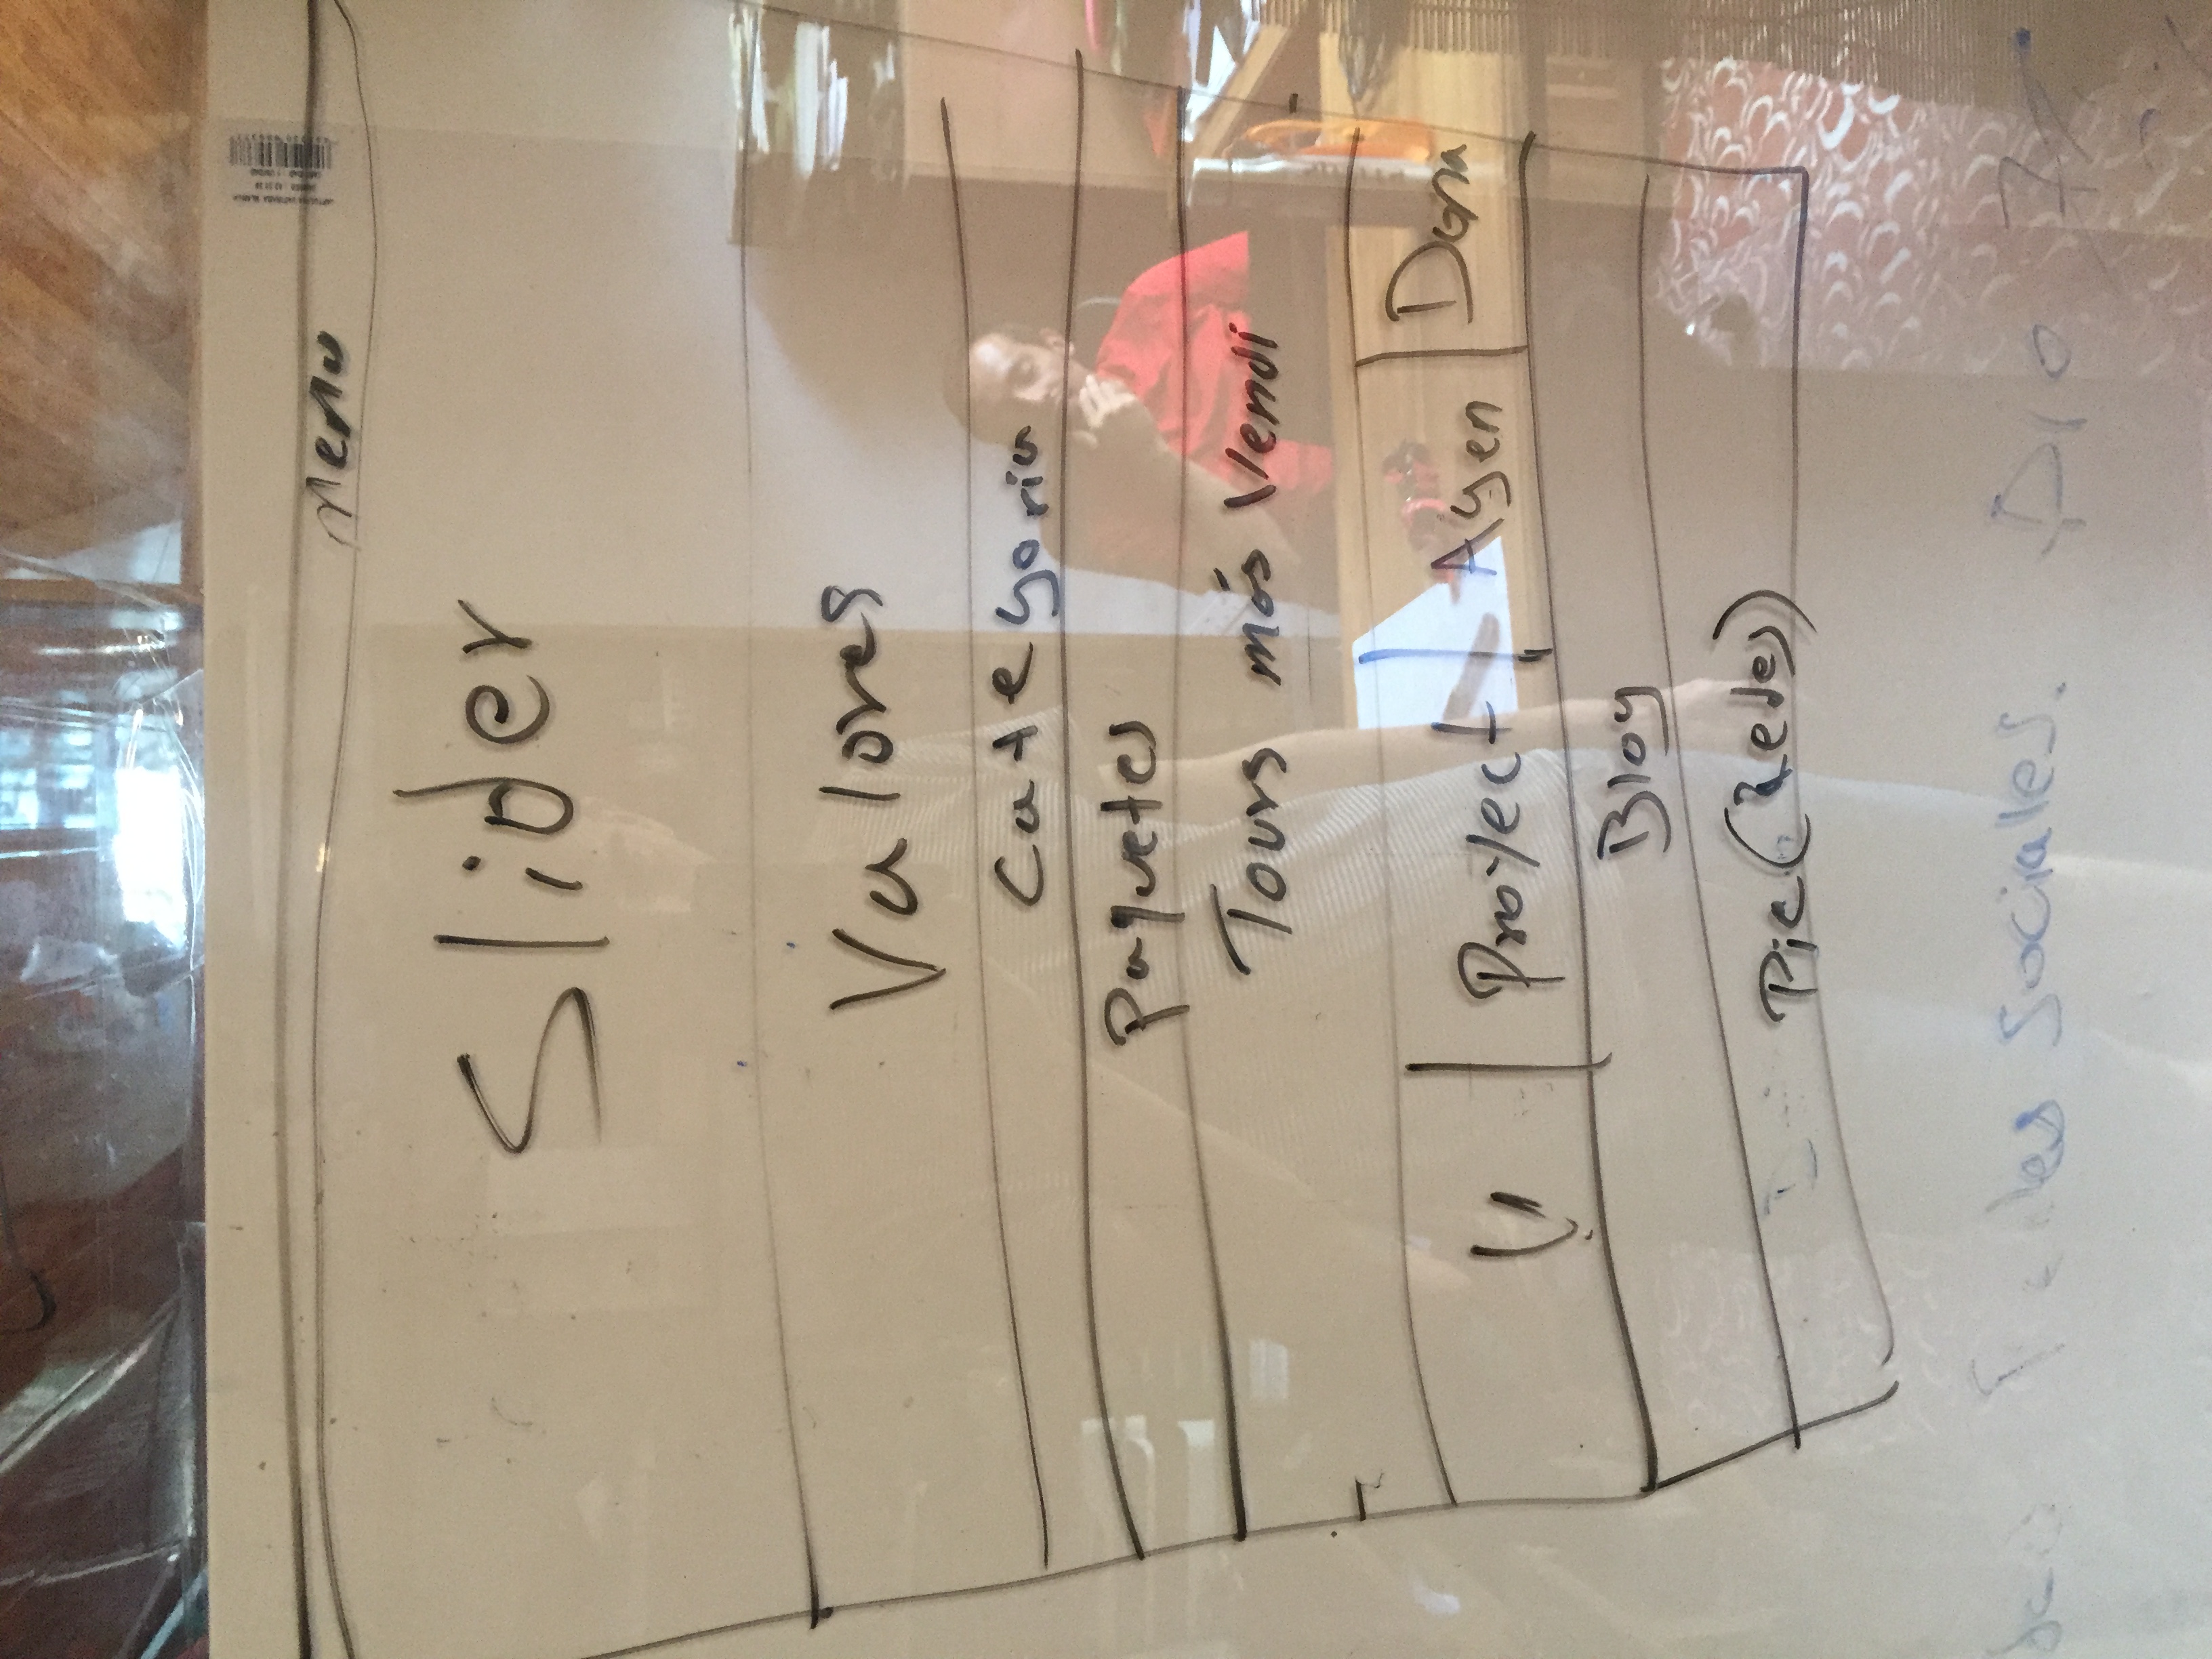 Menu
Slider
Valores
Categoria
Paquetes
Tours más Vendi
Proyect Agen Dona
Blog
Pie (Redes)
Sociales.